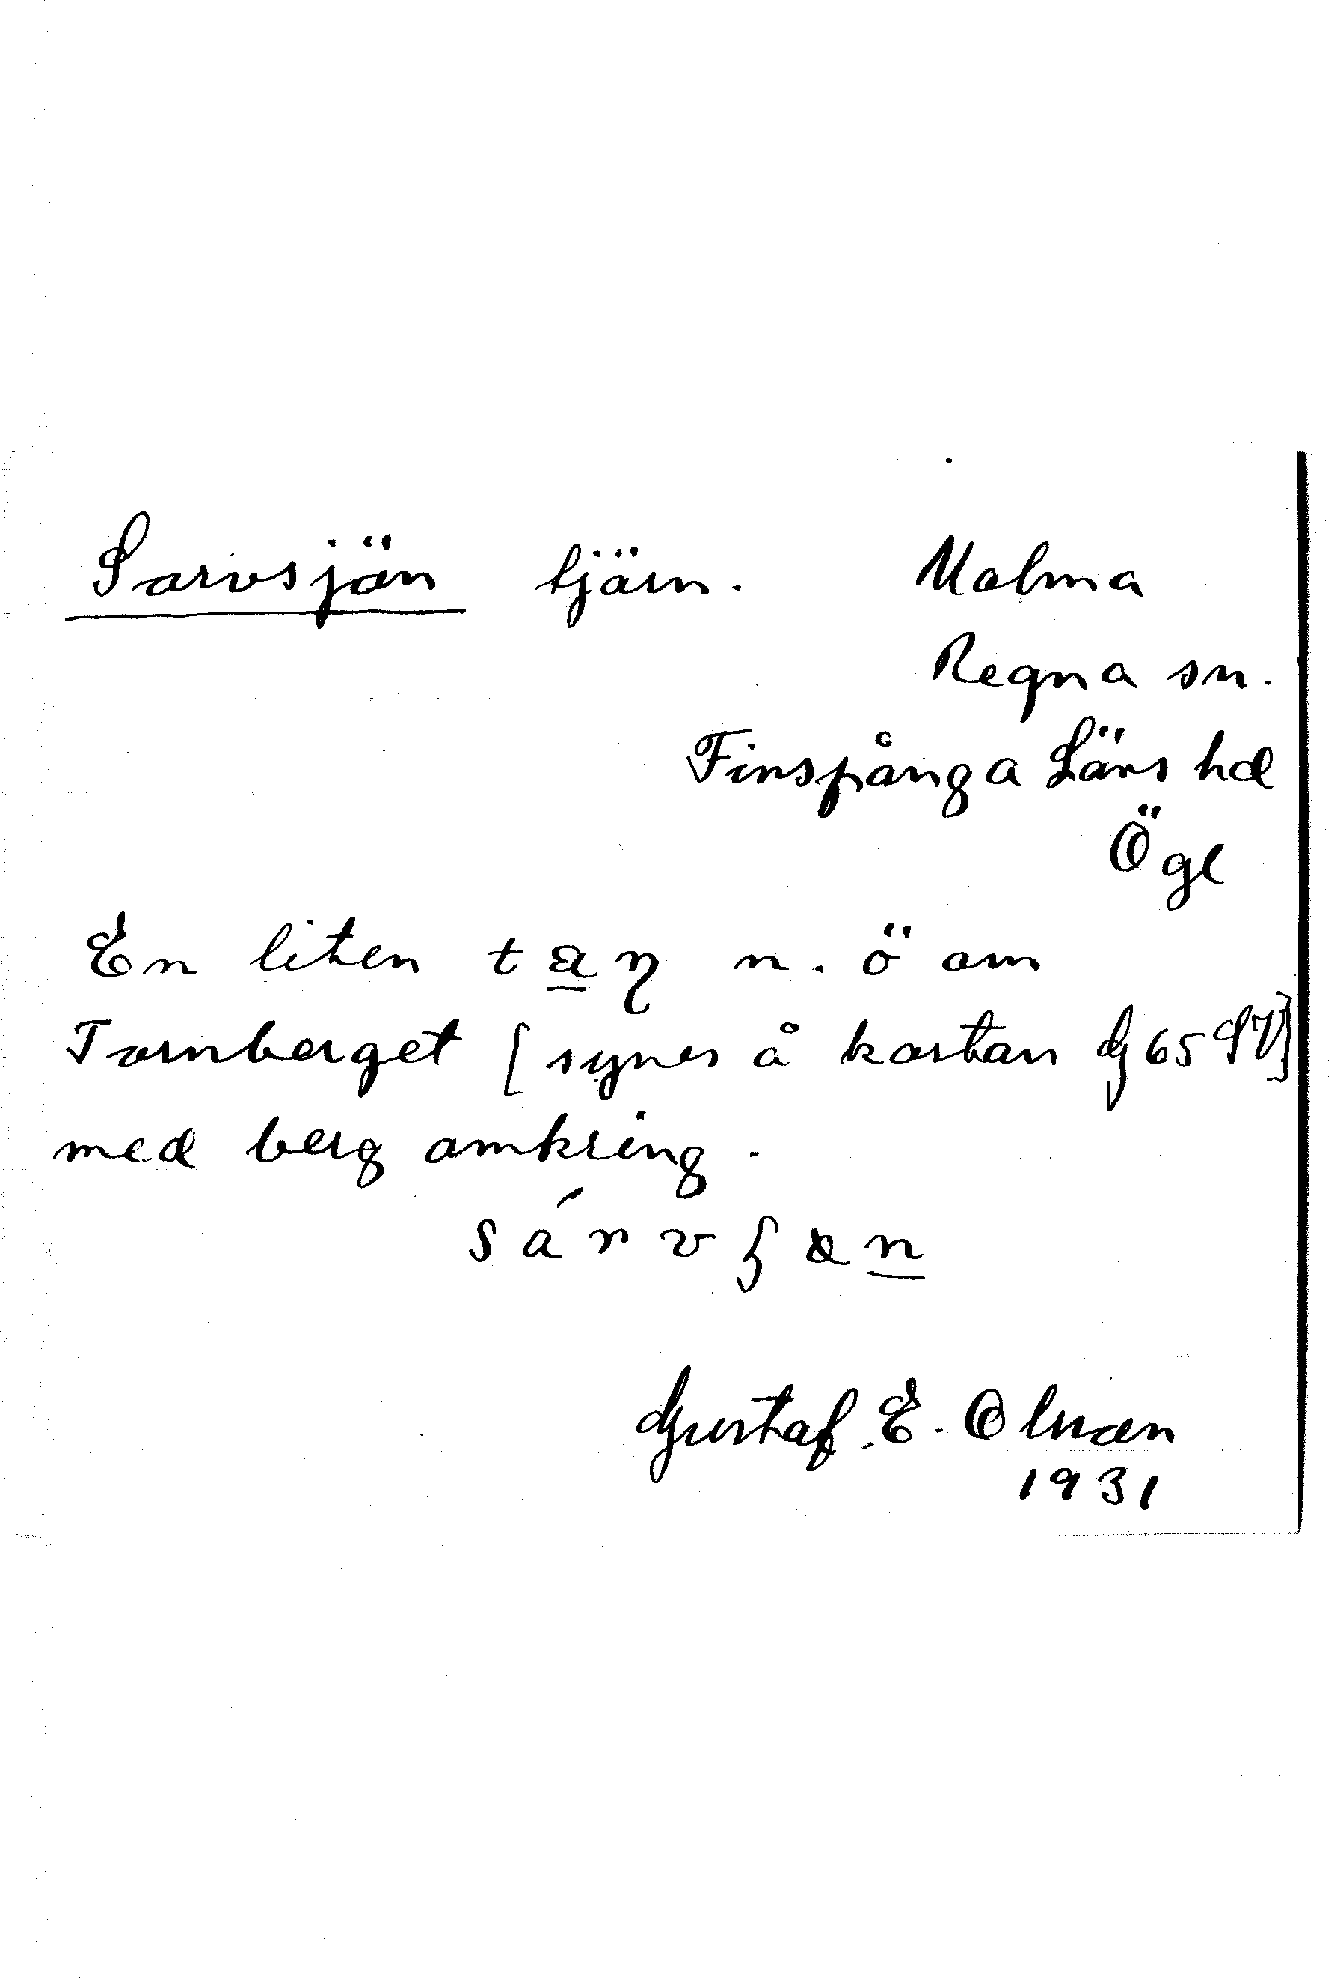 Sarvsjön tjärn. Malma
Regna sn.
Finspånga Läns hd
Ögl
En liten t a̲ ŋ n. ö om
Tornberget [synes å kartan G 65 SV]
med berg omkring.
s á r v ʃ ɷ n̲
Gustaf E. Olsson
1931